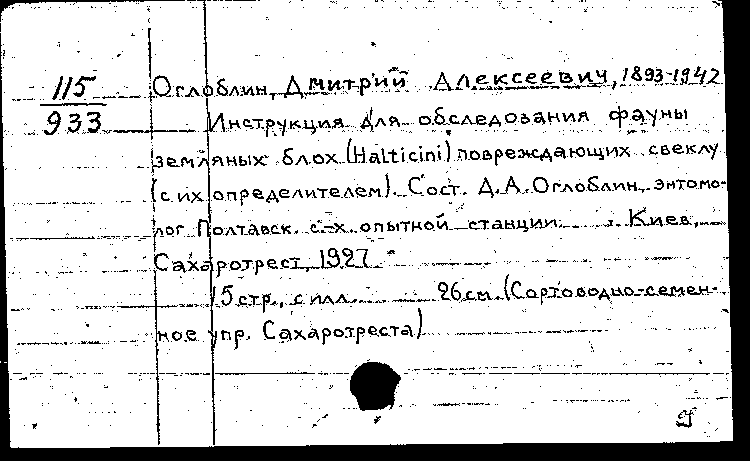 115
933
Оглоблин, Дмитрий Алексеевич, 1893-1942
Инструкция для обследования фауны
земляных блох (Halticini) повреждающих свеклу
(с их определителем). Сост. Д.А. Оглоблин, энтомо-
лог Полтавск. с.-х. опытной станции. Киев,
Сахаротрест, 1927
15 стр., с илл. 26 см. (Сортоводно-семен-
ное упр. Сахаротреста)